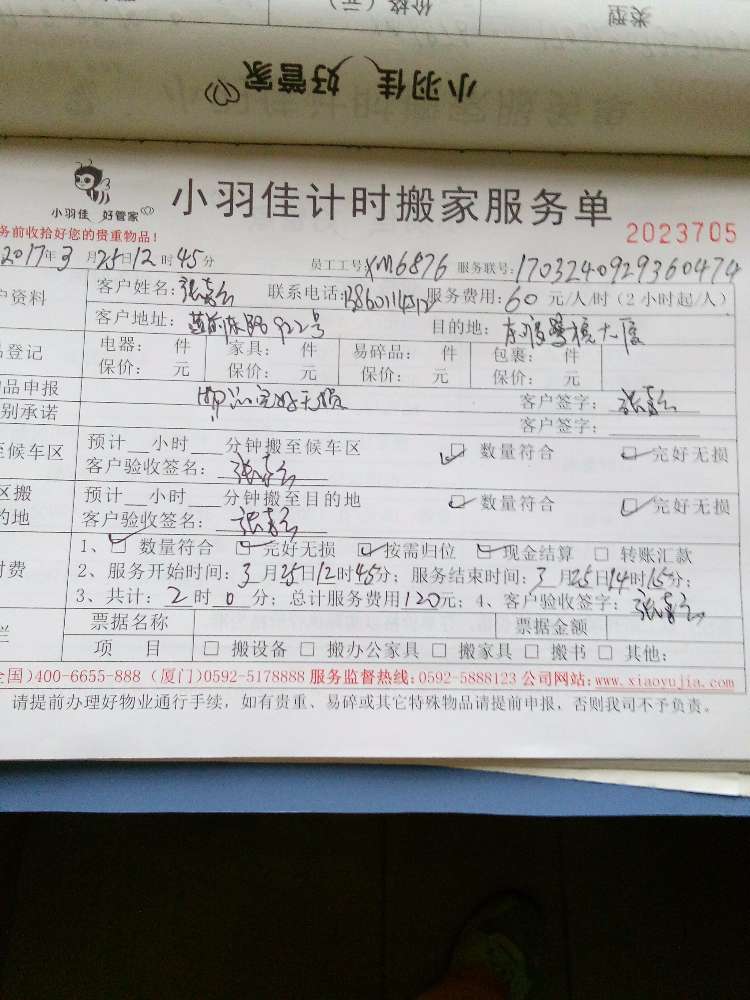 类型
价格（元）
小羽佳 好管家
小羽佳 好管家
小羽佳计时搬家服务单
务前收拾好您的贵重物品！
2023705
2017年3月25日12时45分 员工工号XM6876 服务联号:1703240929360474
户资料 客户姓名: 联系电话: 服务费用:60元/人/时（2小时起/人）
客户地址: 922号 目的地:
品登记 电器: 件 家具: 件 易碎品: 件 包裹: 件
保价: 元 保价: 元 保价: 元 保价: 元
物品申报 完好无损 客户签字:
别承诺 客户签字:
至候车区 预计__小时___分钟搬至候车区 ☑ 数量符合 ☑ 完好无损
客户验收签名:
区搬 预计__小时___分钟搬至目的地 ☑ 数量符合 ☑ 完好无损
的地 客户验收签名:
1、☑ 数量符合 ☑ 完好无损 ☑ 按需归位 ☑ 现金结算 □ 转账汇款
付费 2、服务开始时间: 3月25日12时45分; 服务结束时间: 3月25日14时15分;
3、共计: 2时0分; 总计服务费用120元; 4、客户验收签字:
票据名称 票据金额
栏 项 目 □ 搬设备 □ 搬办公家具 □ 搬家具 □ 搬书 □ 其他:
全国)400-6655-888 (厦门)0592-5178888 服务监督热线:0592-5888123 公司网站:www.xiaoyujia.com
请提前办理好物业通行手续，如有贵重、易碎或其它特殊物品请提前申报，否则我司不予负责。